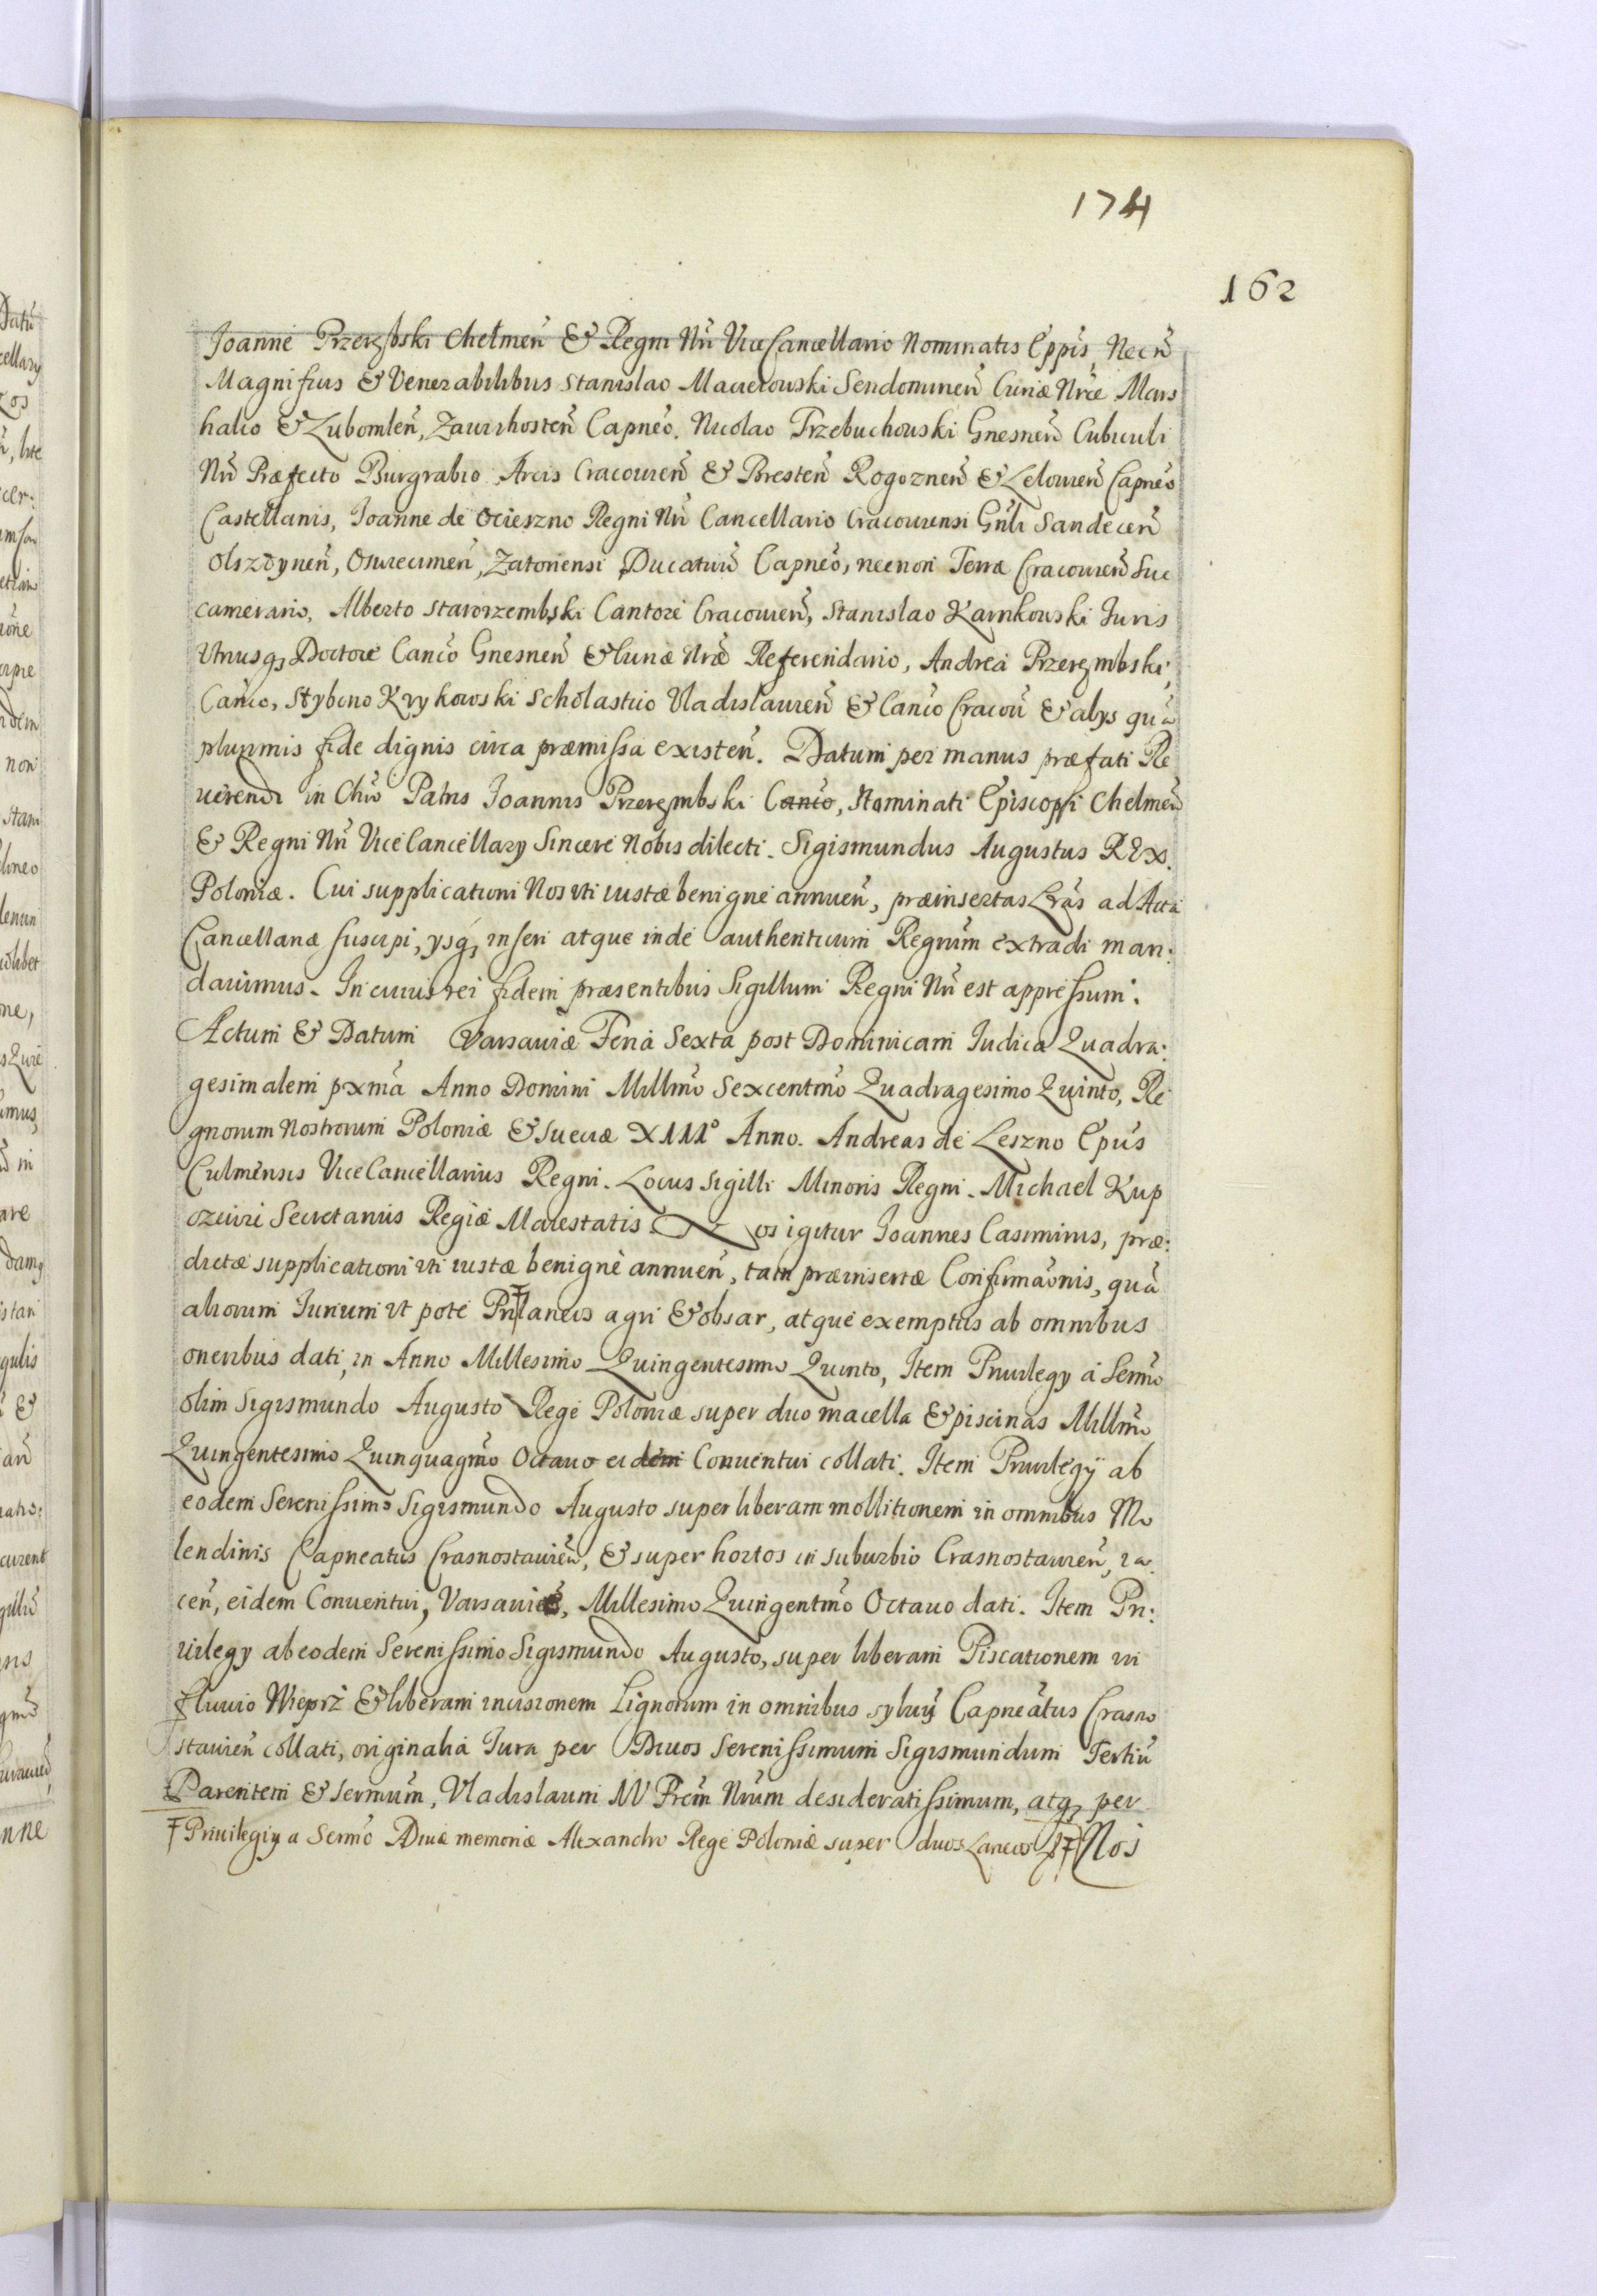 174
162
Joanne Przerębski Chełmeñ & Regni Nri ViceCancellario Nominatis Eppis, Necñ
Magnificis & Venerabilibus Stanislao Macieiowski Sendomireñ Curiæ Nræ Mars
halco & Lubomleñ, Zawichosteñ Capneo. Nicolao Trzebuchowski Gnesneñ Cubiculi
Nri Præfecto Burgrabio Arcis Cracovieñ & Bresteñ Rogozneñ & Lelovieñ Capneo
Castellanis, Joanne de Ocieszno Regni Nri Cancellario Cracoviensi Gnli Sandeceñ
Olsztyneñ, Osviecimeñ, Zatoriensi Ducatuũ Capneo, necnon Terræ Cracovieñ Suc
camerario, Alberto Starorzembski Cantore Cracovieñ, Stanislao Karnkowski Juris
Utriusq; Doctore Canco Gnesneñ & Curiæ Nræ Referendario, Andrea Przerembski;
Canco, Stybeno Krykowski Scholastico Vladislavieñ & Canco Cracoũ & alys quã
plurimis fide dignis circa præmissa existeñ. Datum per manus præfati Re
verendi in Chro Patris Joannis Przerembski Canco, Nominati Episcopi Chelmeñ
& Regni Nri ViceCancellary Sincere Nobis dilecti. Sigismundus Augustus REX
Poloniæ. Cui supplicationi Nos uti iustæ benigne annueñ, præinsertas Lras ad Acta
Cancellariæ suscipi, ysq; inseri atque inde authenticum Regnum extradi man:
davimus. In cuius rei fidem præsentibus Sigillum Regni Nri est appressum.
Actum & Datum Varsaviæ Feria Sexta post Dominicam Judica Quadra:
gesimalem pxma Anno Domini Millmo Sexcentmo Quadragesimo Quinto, Re
gnorum Nostrorum Poloniæ & Sueciæ XIII° Anno. Andreas de Leszno Epus
Culmensis ViceCancellarius Regni. Locus Sigilli Minoris Regni. Michael Kup
czewi Secretarius Regiæ Maiestatis. Nos igitur Joannes Casimirus, præ:
dictæ supplicationi uti iustæ benignè annueñ, tam præinsertæ Confirmãonis, quã
aliorum Jurium ut pote Pri Laneis agri & obsar, atque exemptis ab omnibus
oneribus dati, in Anno Millesimo Quingentesimo Quinto, Item Privilegy a Sermo
olim Sigismundo Augusto Rege Poloniæ super duo macella & piscinas Millmo
Quingentesimo Quinquagmo Octavo eidem Conventui collati. Item Privilegÿ ab
eodem Serenissimo Sigismundo Augusto super liberam mollitionem in omnibus Mo
lendinis Capneatus Crasnostavieñ, & super hortos in suburbio Crasnostavieñ, ia
ceñ, eidem Conventui, Varsaviæ, Millesimo Quingentmo Octavo dati. Item Pri:
vilegy ab eodem Serenissimo Sigismundo Augusto, super liberam Piscationem in
fluvio Wieprz & liberam incisionem Lignorum in omnibus sylvij Capneatus Crasno
stavieñ collati, originalia Jura per Divos Serenissimum Sigismundum Tertiũ
Parentem & Sermum, Vladislaum IV Frem Nrum desideratissimum, atq; per
Ŧ Privilegiy a Sermo Divæ memoriæ Alexandro Rege Poloniæ super duos Laneos Ŧ Nos